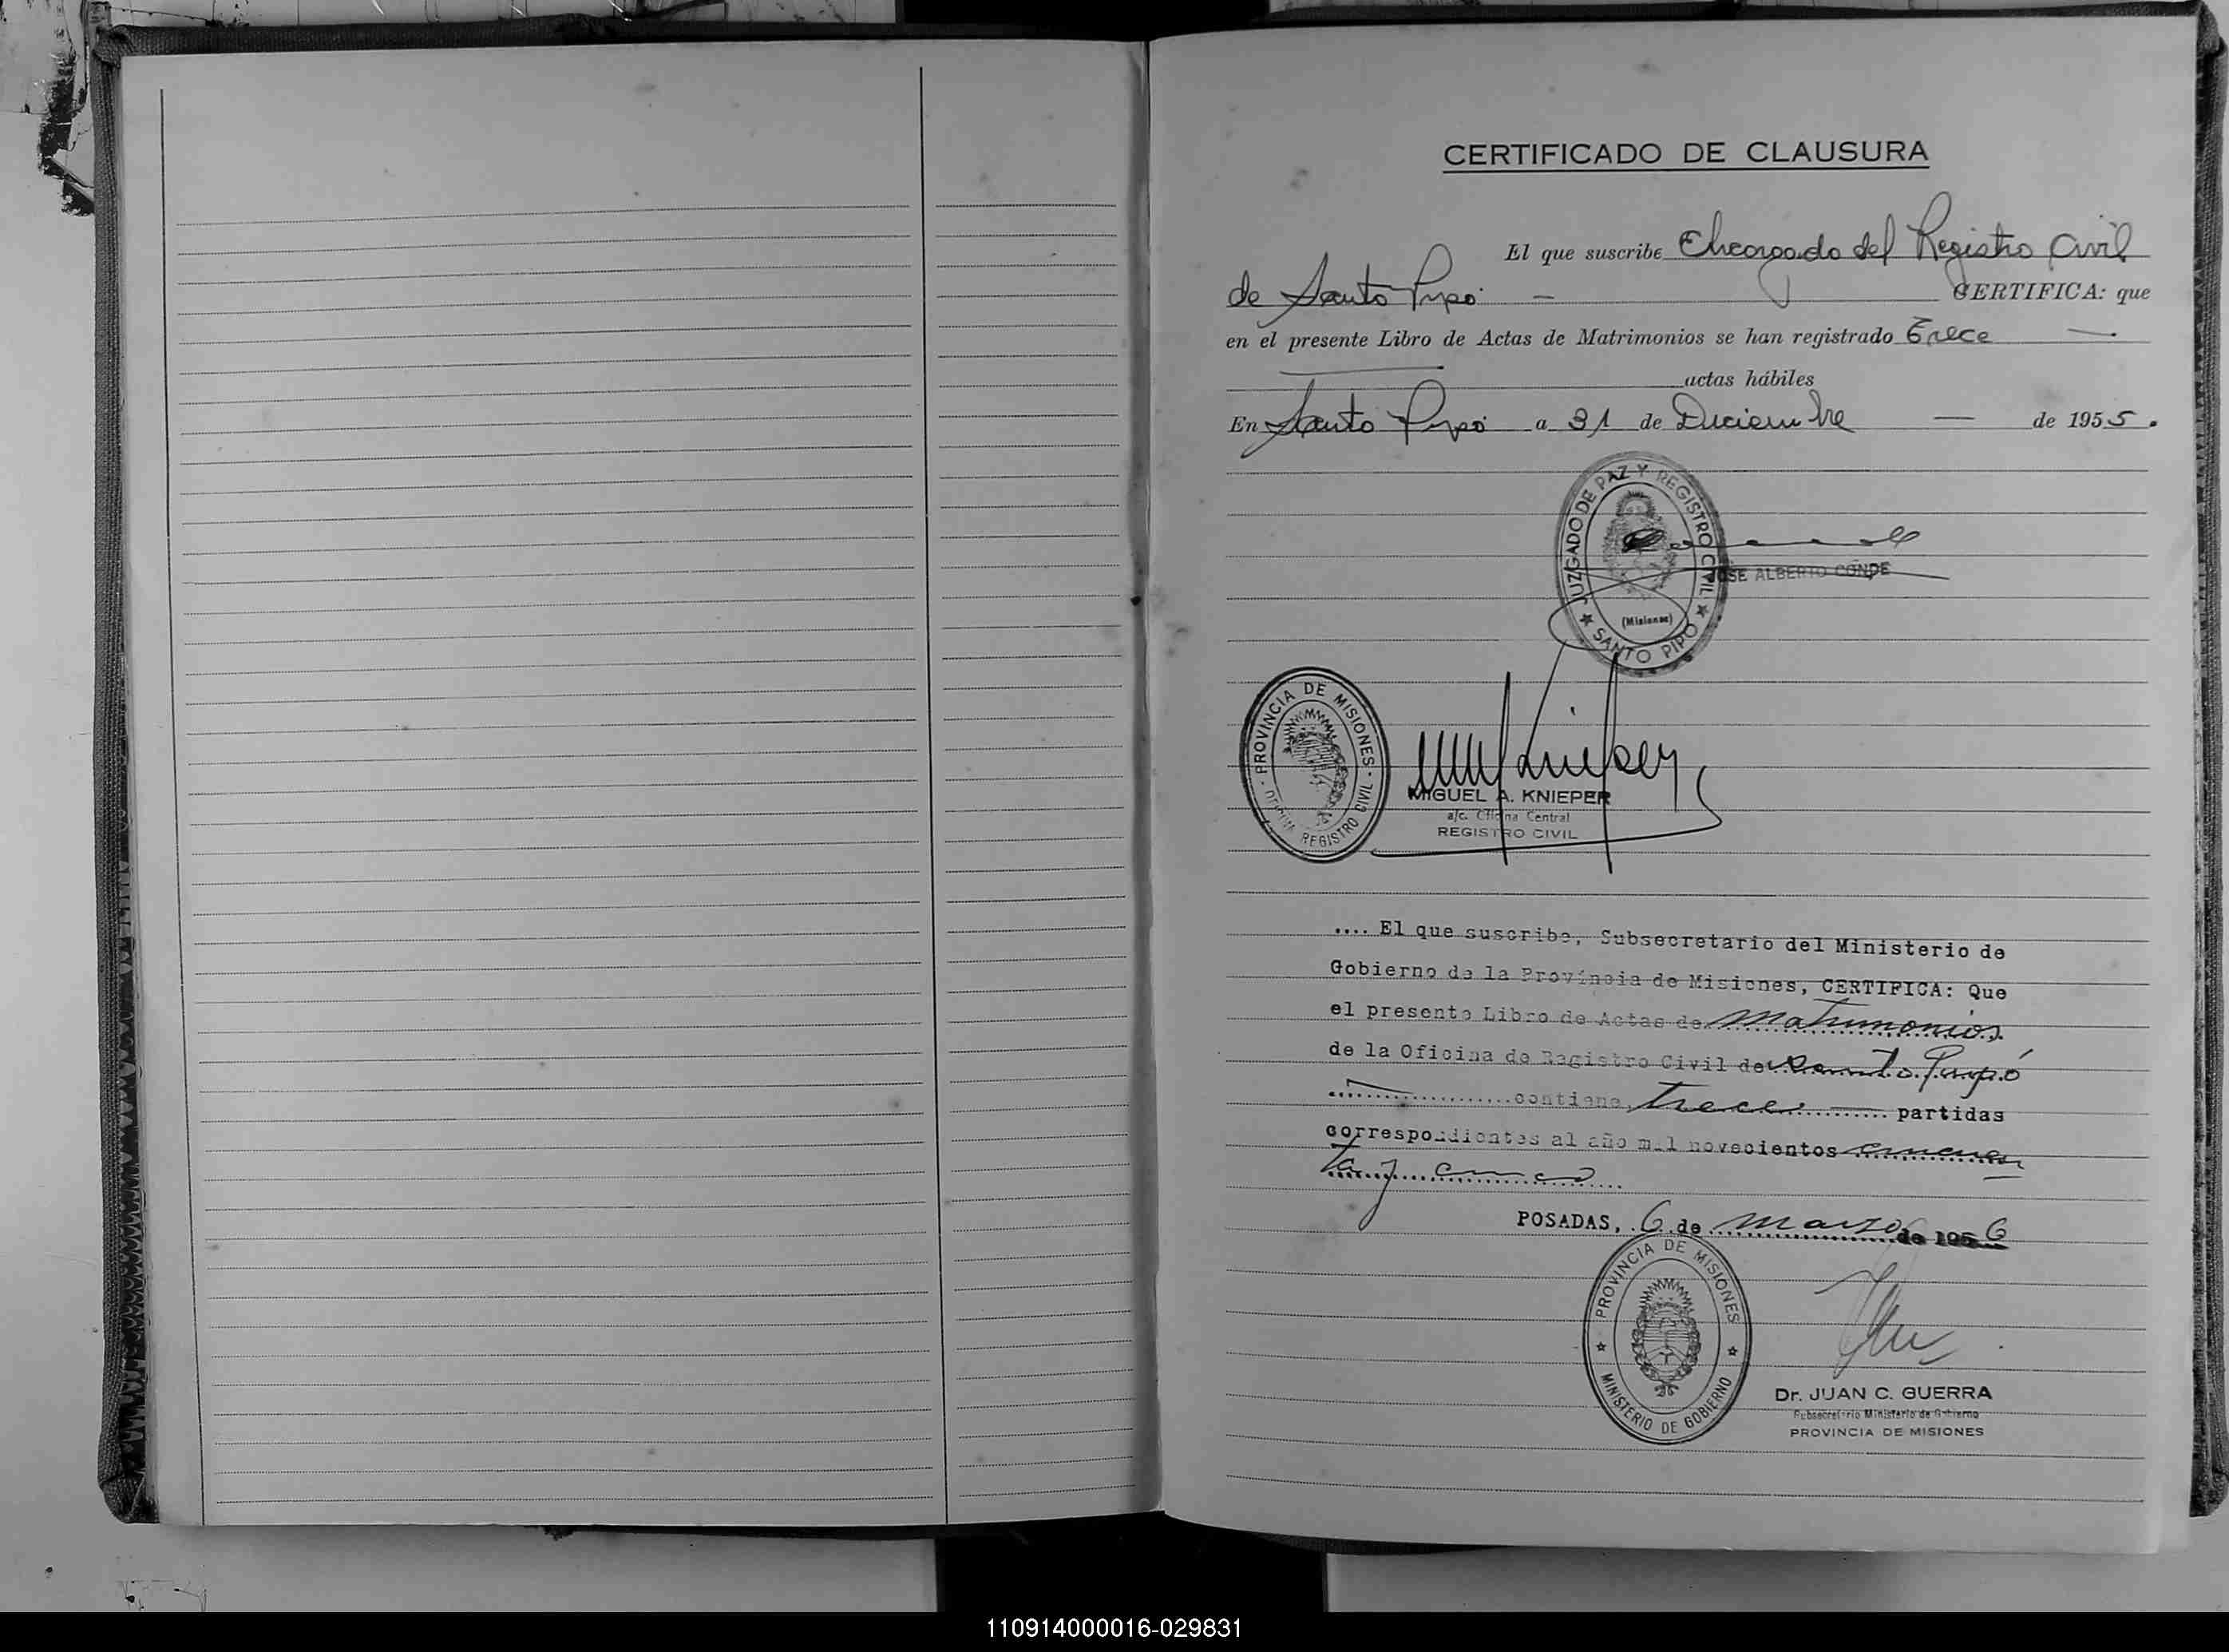 CERTIFICADO DE CLAUSURA
El que suscribe Encargado del Registro Civil
de Santo Pipó — CERTIFICA: que
en el presente Libro de Actas de Matrimonios se han registrado Trece —
actas hábiles
En Santo Pipó a 31 de Diciembre — de 1955.
JUZGADO DE PAZ Y REGISTRO CIVIL
(Misiones)
★ SANTO PIPO ★
JOSE ALBERTO CONDE
PROVINCIA DE MISIONES
OFICINA REGISTRO CIVIL
MIGUEL A. KNIEPER
a/c. Oficina Central
REGISTRO CIVIL
.... El que suscribe, Subsecretario del Ministerio de
Gobierno de la Província de Misiones, CERTIFICA: Que
el presente Libro de Actas de matrimonios
de la Oficina de Registro Civil de Santo Pipó
contiene, trece — partidas
correspondientes al año mil novecientos cincuen
ta y cinco
POSADAS, 6 de marzo de 1956
PROVINCIA DE MISIONES
★ MINISTERIO DE GOBIERNO ★
Dr. JUAN C. GUERRA
Subsecretario Ministerio de Gobierno
PROVINCIA DE MISIONES
110914000016-029831